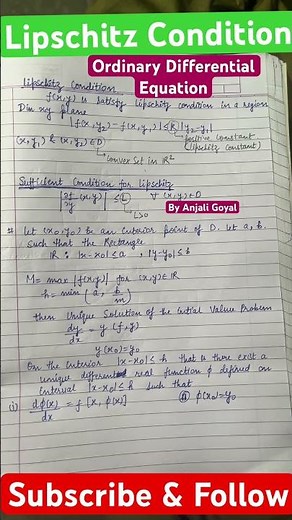 Lipschitz Condition
Ordinary Differential
Equation
Lipschitz Condition
f(x,y) is satisfy Lipschitz condition in a region
D in xy plane
|f(x,y₂) - f(x,y₁)| ≤ K |y₂-y₁|
(x,y₁) & (x,y₂) ∈ D
positive constant
(Lipschitz Constant)
Convex Set in ℝ²
Sufficient Condition for Lipschitz
|∂f/∂y (x,y)| ≤ L ∀ (x,y) ∈ D
L>0
By Anjali Goyal
let (x₀,y₀) be an interior point of D. let a, b.
Such that the Rectangle
R: |x-x₀| ≤ a , |y-y₀| ≤ b
M = max |f(x,y)| for (x,y) ∈ R
h = min (a, b/m)
then Unique Solution of the initial Value Problem
dy/dx = y (f,y)
y(x₀)=y₀
On the interior |x-x₀| ≤ h that is there exist a
unique different real function ϕ defined on
interval |x-x₀| ≤ h such that
(i) dϕ(x)/dx = f [x, ϕ(x)] (ii) ϕ(x₀)=y₀
Subscribe & Follow